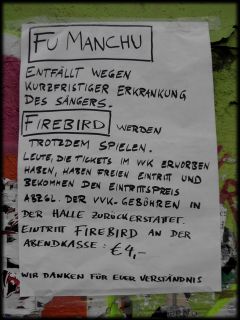 FU MANCHU
ENTFÄLLT WEGEN
KURZFRISTIGER ERKRANKUNG
DES SÄNGERS.
FIREBIRD WERDEN
TROTZDEM SPIELEN.
LEUTE, DIE TICKETS IM VVK ERWORBEN
HABEN, HABEN FREIEN EINTRITT UND
BEKOMMEN DEN EINTRITTSPREIS
ABZGL. DER VVK-GEBÜHREN IN
DER HALLE ZURÜCKERSTATTET.
EINTRITT FIREBIRD AN DER
ABENDKASSE: €4,-
WIR DANKEN FÜR EUER VERSTÄNDNIS